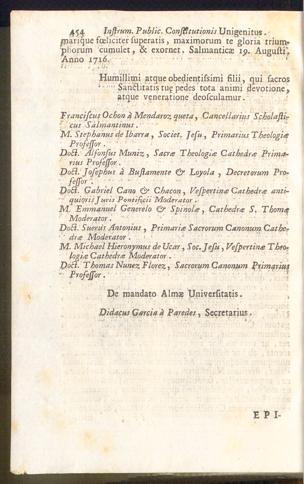 454 Instrum. Public. Constitutionis Unigenitus.
marique fœliciter superatis, maximorum te gloria trium-
phorum cumulet, & exornet. Salmanticæ 19. Augusti,
Anno 1716.
Humillimi atque obedientissimi filii, qui sacros
Sanctitatis tuę pedes tota animi devotione,
atque veneratione deosculamur.
Franciscus Ochon à Mendaroz queta, Cancellarius Scholasti-
cus Salmantinus.
M. Stephanus de Ibarra, Societ. Jesu, Primarius Theologiæ
Professor.
Doct. Alfonsus Muniz, Sacræ Theologiæ Cathedræ Prima-
rius Professor.
Doct. Josephus à Bustamente & Loyola, Decretorum Pro-
fessor.
Doct. Gabriel Cano & Chacon, Vespertinæ Cathedræ anti-
quioris Juris Pontificii Moderator.
M. Emmanuel Generelo & Spinolæ, Cathedræ S. Thomæ
Moderator.
Doct. Sueris Antonius, Primariæ Sacrorum Canonum Cathe-
dræ Moderator.
M. Michael Hieronymus de Ucar, Soc. Jesu, Vespertinæ Theo-
logiæ Cathedræ Moderator.
Doct. Thomas Nunez Florez, Sacrorum Canonum Primarius
Professor.
De mandato Almæ Universitatis.
Didacus Garcia à Paredes, Secretarius.
EPI-